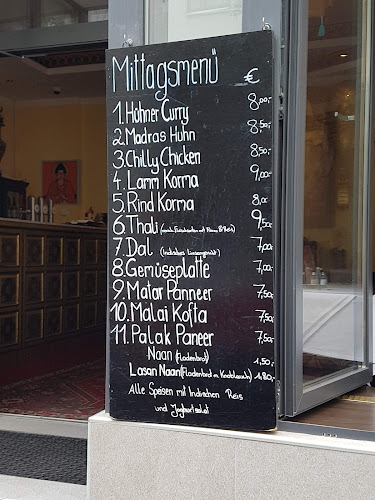 Mittagsmenü €
1. Hühner Curry 8,00,-
2. Madras Huhn 8,50,-
3. Chilly Chicken 8,50,-
4. Lamm Korma 9,00,-
5. Rind Korma 8,00
6. Thali 9,50,-
7. Dal (Indisches Linsengericht) 7,00,-
8. Gemüseplatte 7,00,-
9. Matar Panneer 7,50,-
10. Malai Kofta 7,50,-
11. Palak Paneer 7,50,-
Naan (Fladenbrot) 1,50,-
Lasan Naan (Fladenbrot m. Knoblauch) 1,80,-
Alle Speisen mit Indischen Reis
und Joghurtsalat